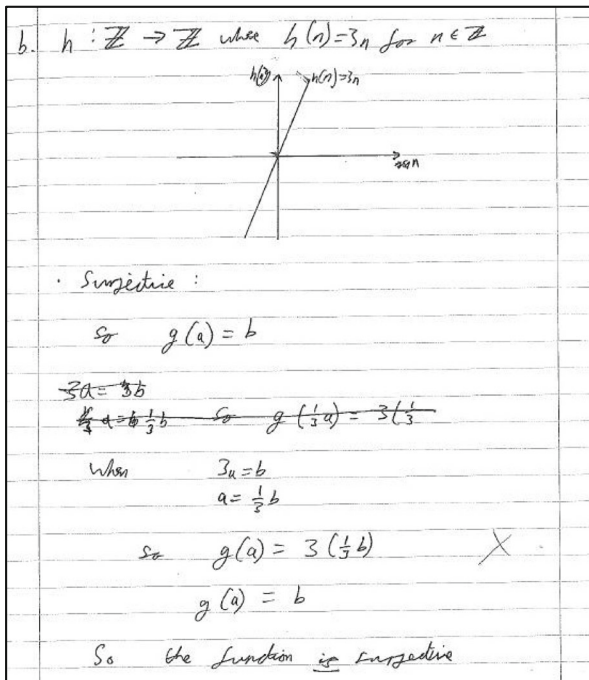 b. h : ℤ → ℤ where h(n)=3n for n ∈ ℤ
h(n)=3n
n
· Surjective :
so g(a) = b
3a = 3b
a = 1/3 b so g(1/3 a) = 3(1/3
when 3a = b
a = 1/3 b
so g(a) = 3(1/3 b) X
g(a) = b
So the function is surjective